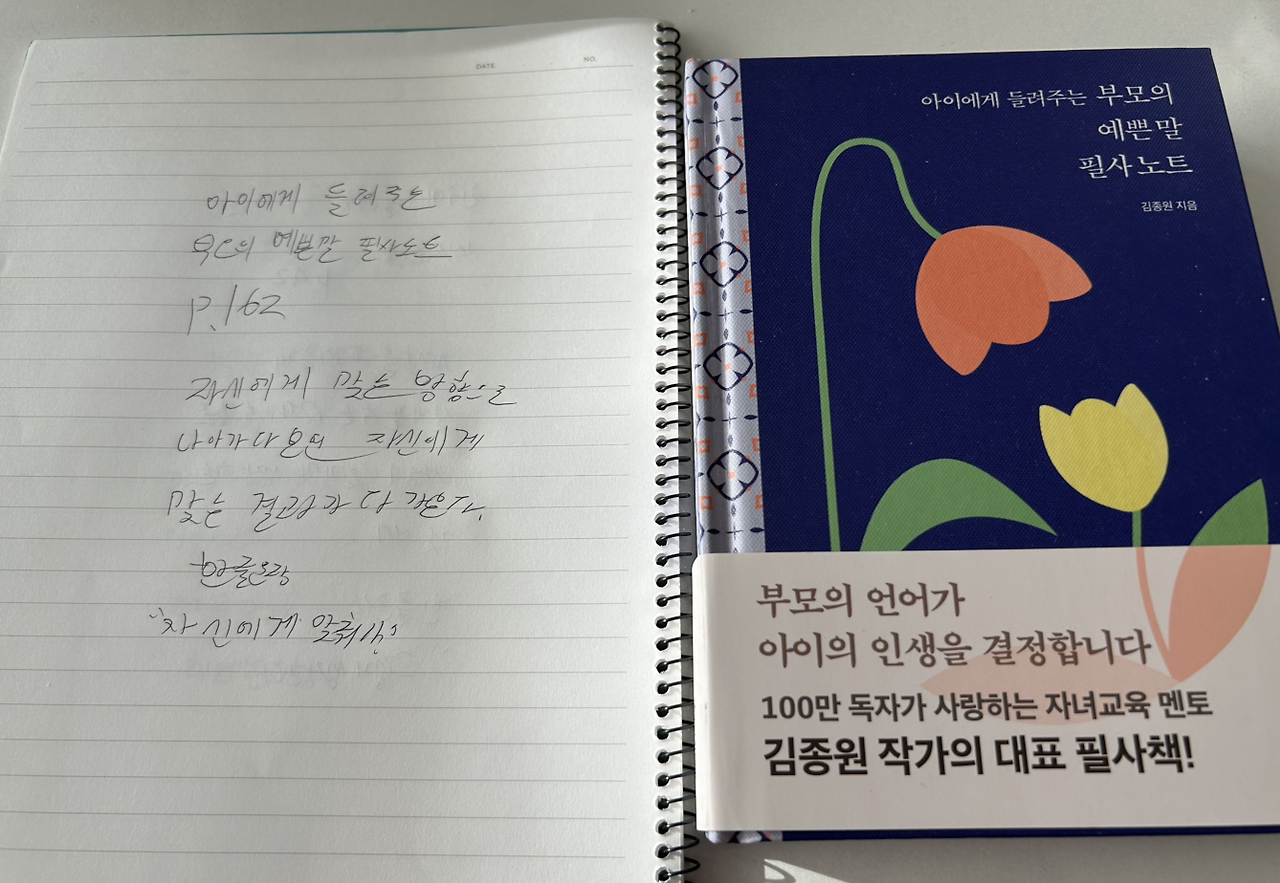 DATE. NO.
아이에게 들려주는
부모의 예쁜말 필사노트
P. 162
자신에게 맞는 방향으로
나아가다 보면 자신에게
맞는 결과가 다
한줄요약
"자신에게
아이에게 들려주는 부모의
예쁜 말
필사 노트
김종원 지음
부모의 언어가
아이의 인생을 결정합니다
100만 독자가 사랑하는 자녀교육 멘토
김종원 작가의 대표 필사책!